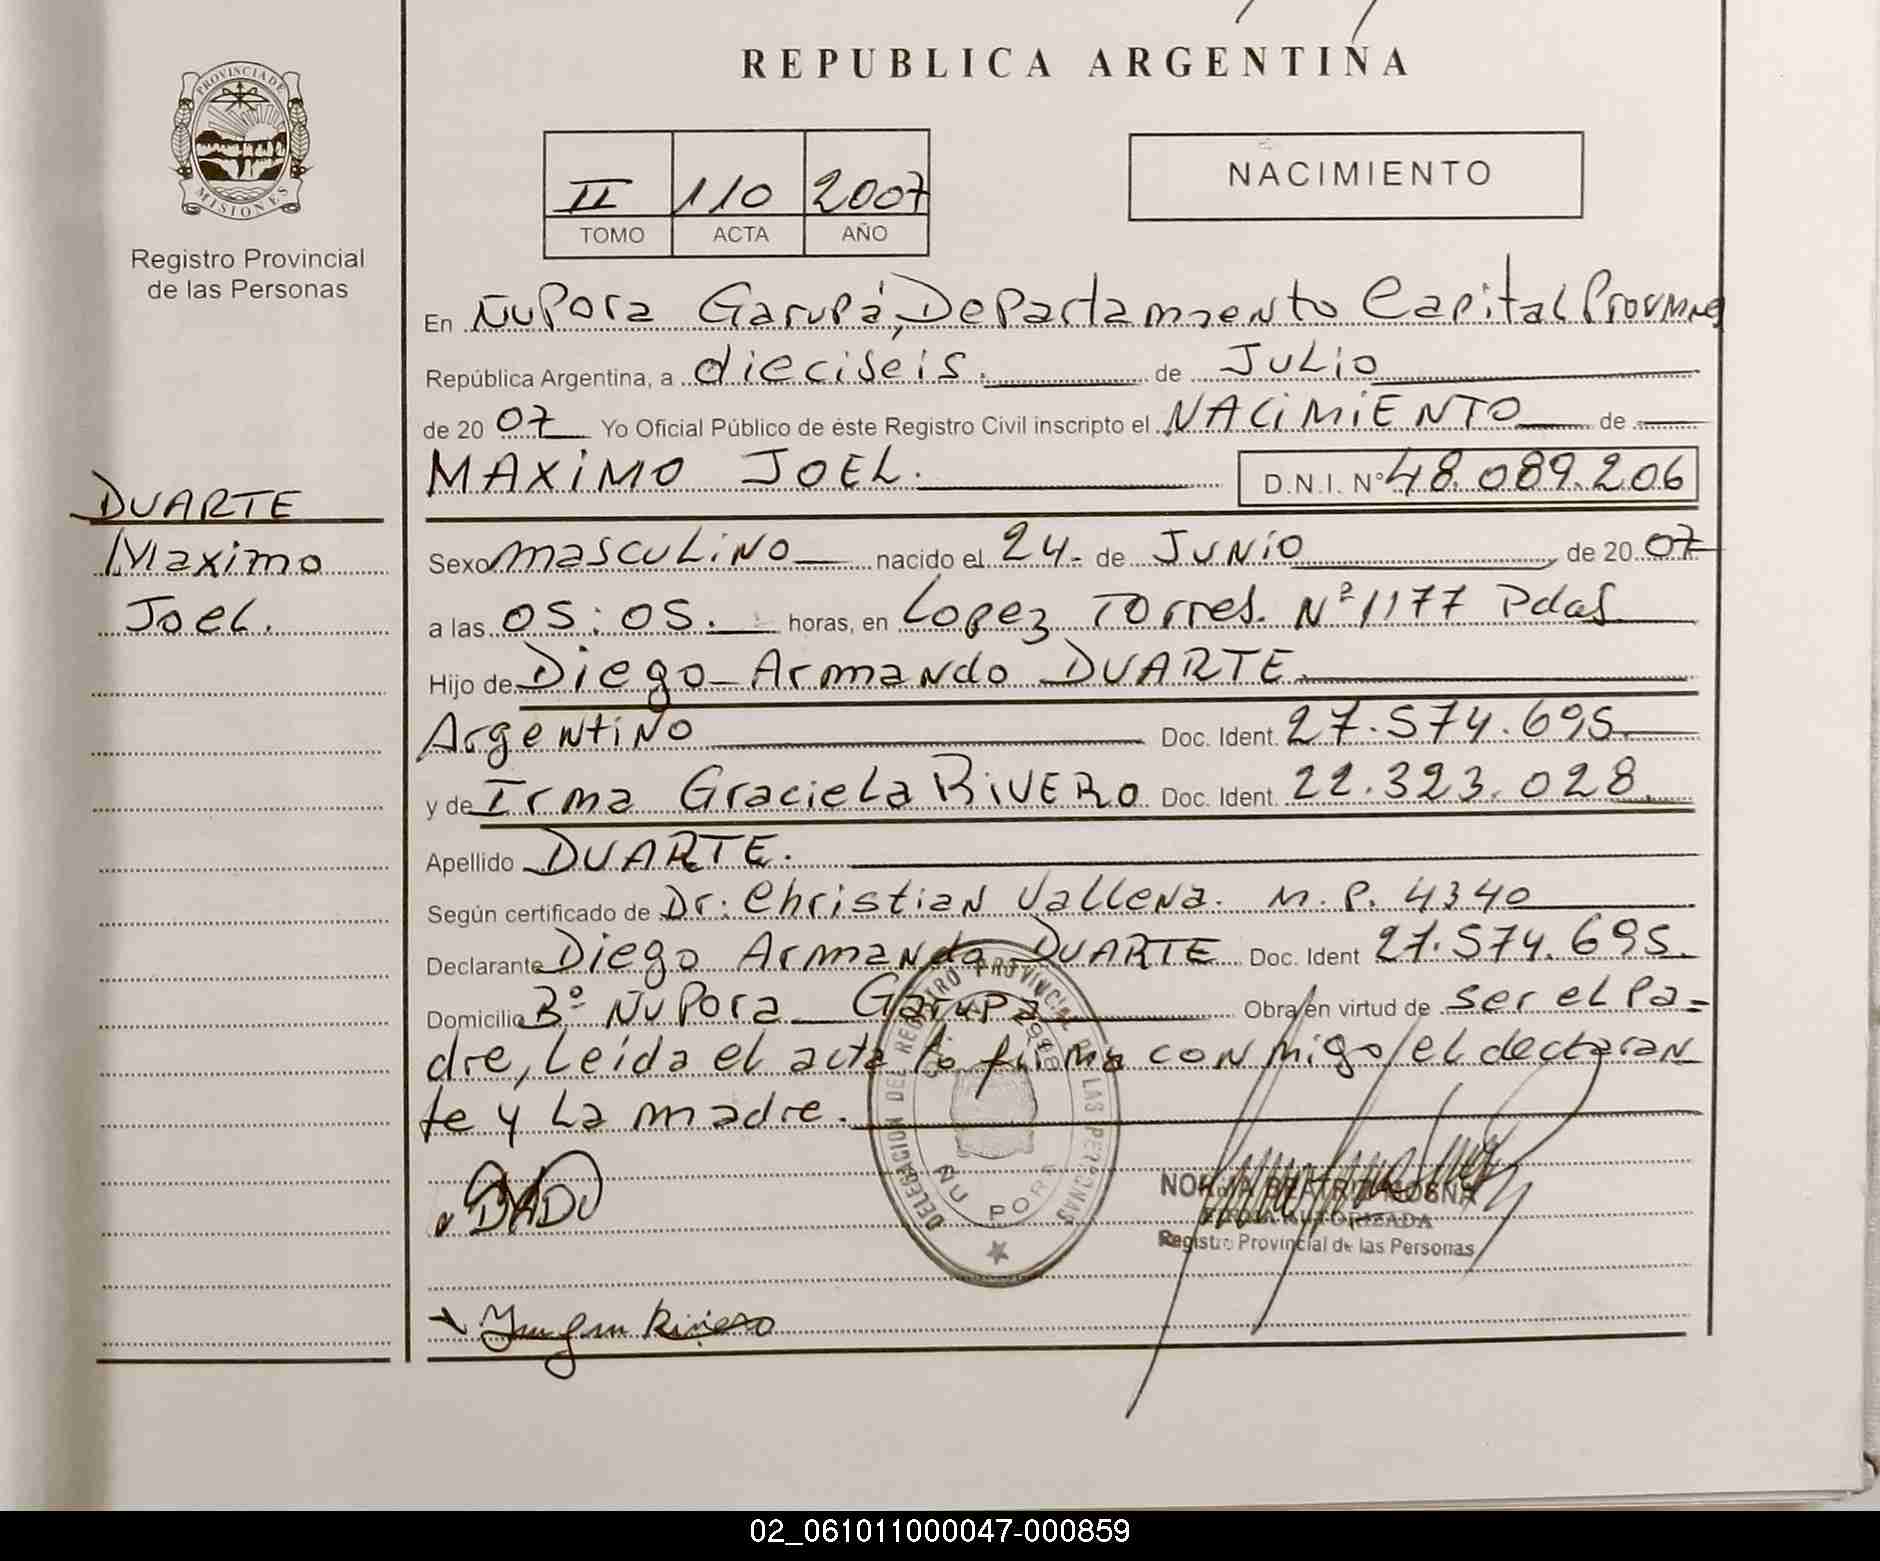 REPUBLICA ARGENTINA
PROVINCIA DE
MISIONES
Registro Provincial
de las Personas
II 110 2007
TOMO ACTA AÑO
NACIMIENTO
En Ñu Pora Garupá, Departamento Capital Prov Mnes
República Argentina, a dieciseis. de Julio
de 20 07 Yo Oficial Público de éste Registro Civil inscripto el NACIMIENTO de
MAXIMO JOEL. D.N.I. N° 48.089.206
DUARTE
Maximo
Joel.
Sexo masculino nacido el 24 - de Junio de 20 07
a las 05:05. horas, en Lopez Torres. Nº 1177 Pdas
Hijo de Diego Armando DUARTE
Argentino Doc. Ident. 27.574.695
y de Irma Graciela RIVERO Doc. Ident. 22.323.028
Apellido DUARTE.
Según certificado de Dr. Christian Vallena. M.P. 4340
Declarante Diego Armando DUARTE Doc. Ident 27.574.695.
Domicilio Bº Ñu Pora Garupa Obra en virtud de ser el Pa=
dre, Leida el acta la firma conmigo el declaran
te y La madre.
DELEGACION DEL REGISTRO PROVINCIAL DE LAS PERSONAS
ÑU PORA
BEATRIZ
AUTORIZADA
Registro Provincial de las Personas
Rivero
02_061011000047-000859